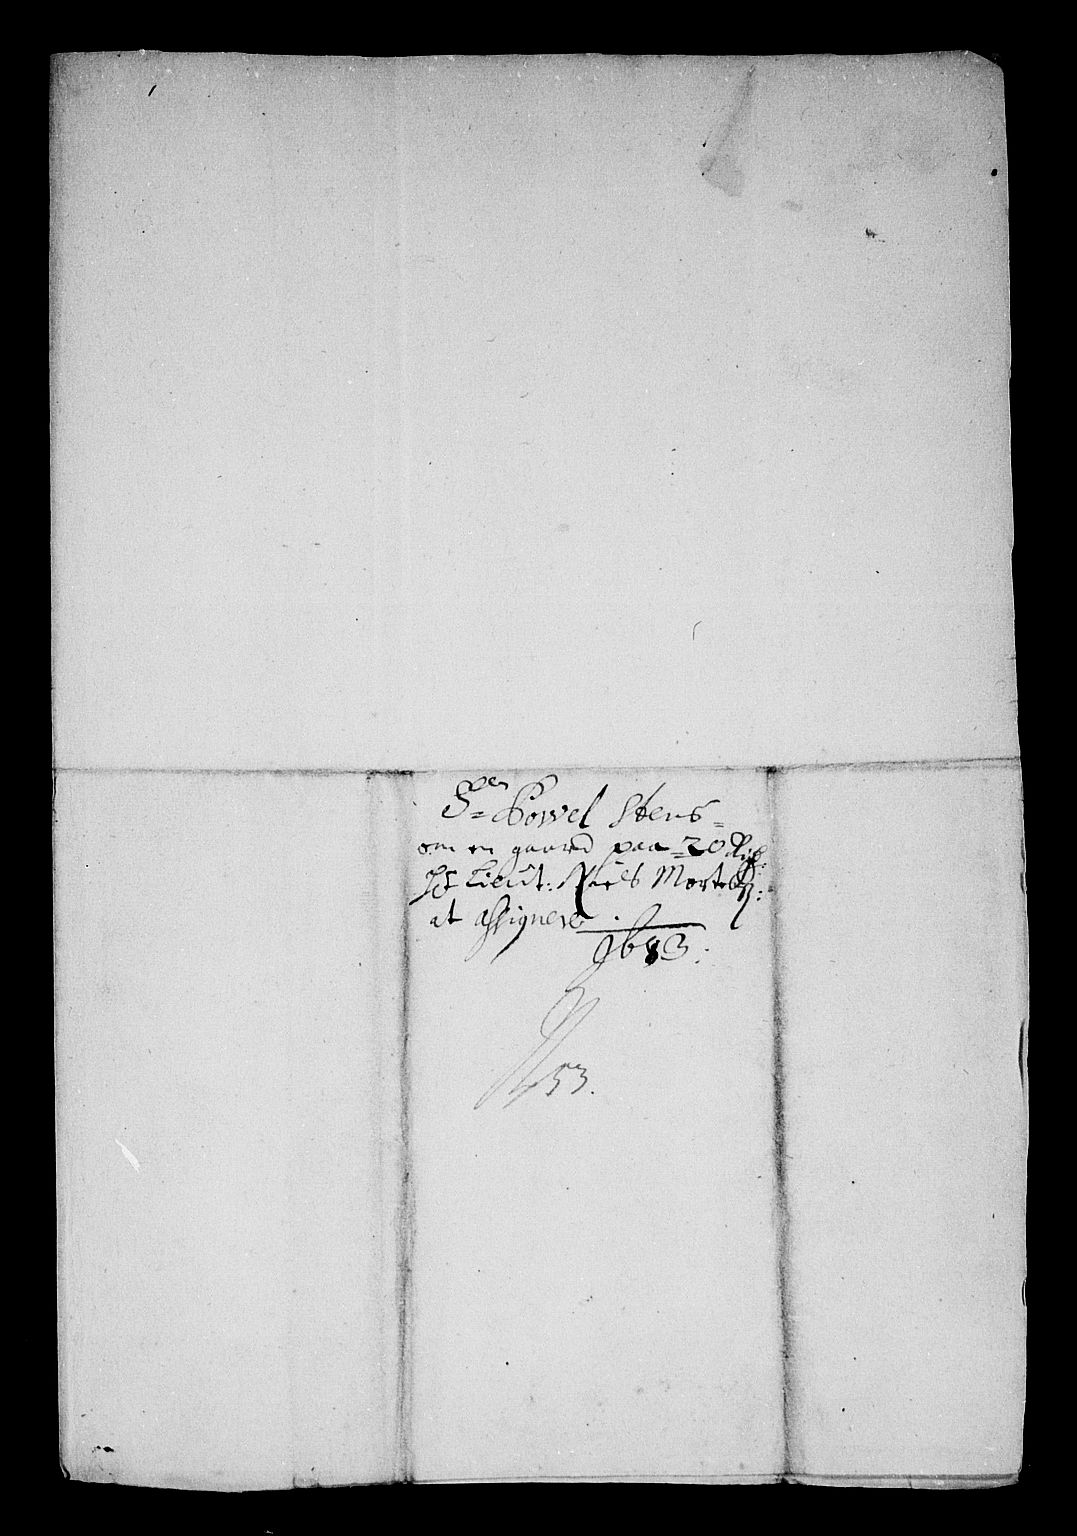 Sr Powel Steus
om en gaard paa 20 Rix:
Lieut: Niels Mortens:
at assignere
1683:
N 53.